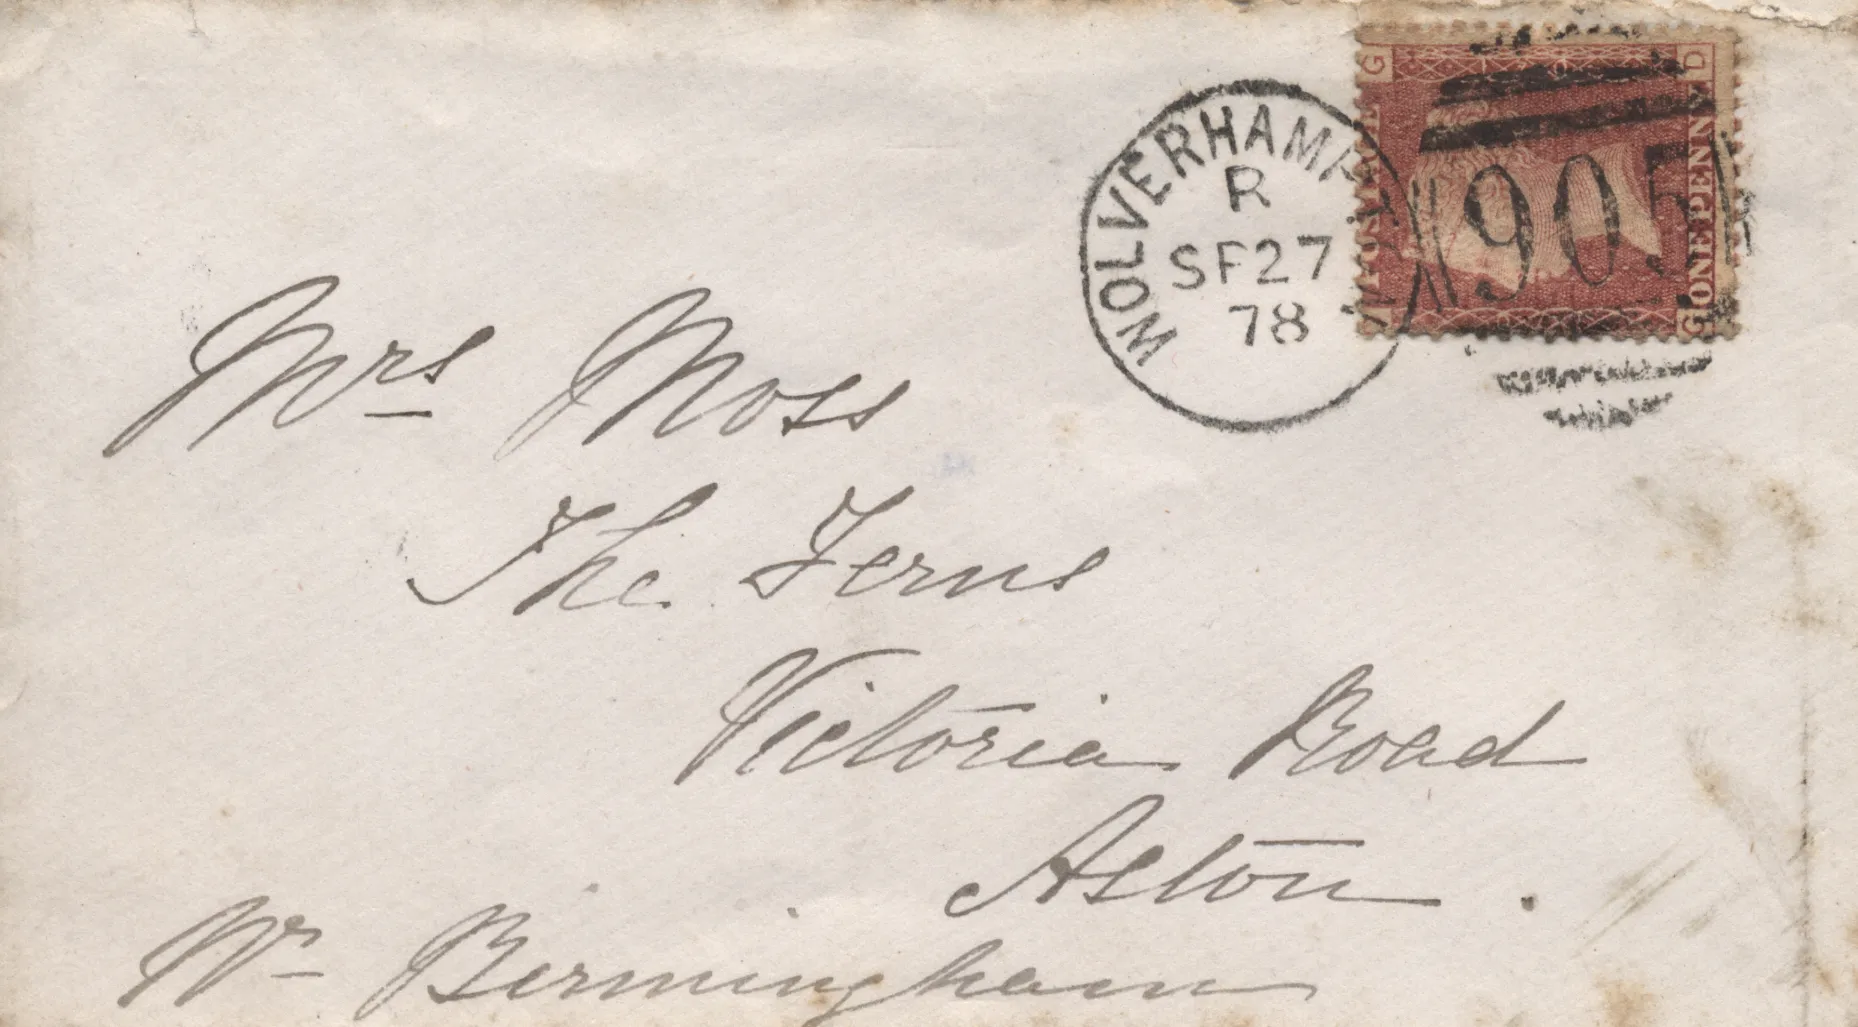 WOLVERHAMPTON
R
SP27
78
905
G D
POSTAGE
ONE PENNY
D G
Mrs Moss
The Ferns
Victoria Road
Aston.
Nr Birmingham